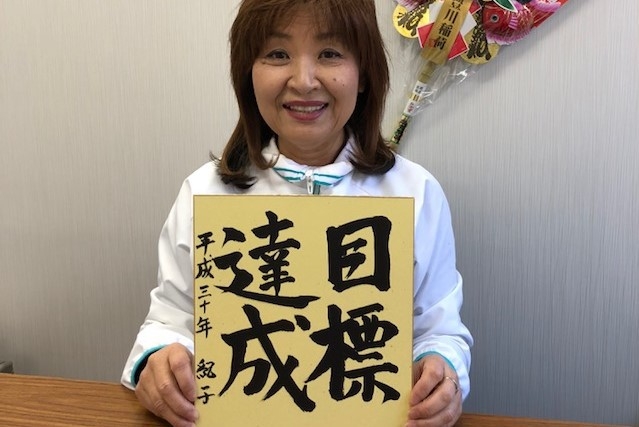 目標
達成
平成三十年 紀子
豆川稲荷